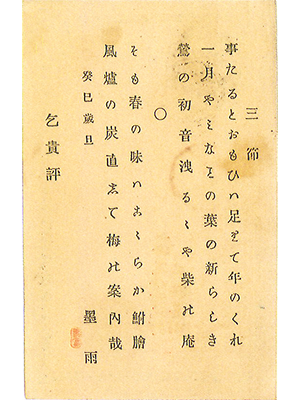 三節
事たるとおもひハ足りて年のくれ
一月やミな の葉の新らしき
鶯の初音洩るゝや柴の庵
○
そも春の味ハこゝらか鮒膾
風爐の炭直して梅の案内哉
癸巳歳旦
墨雨
乞貴評